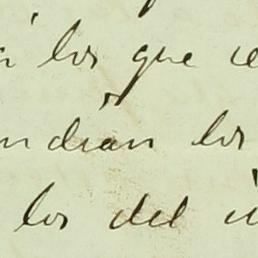 los que
ndian los
los del